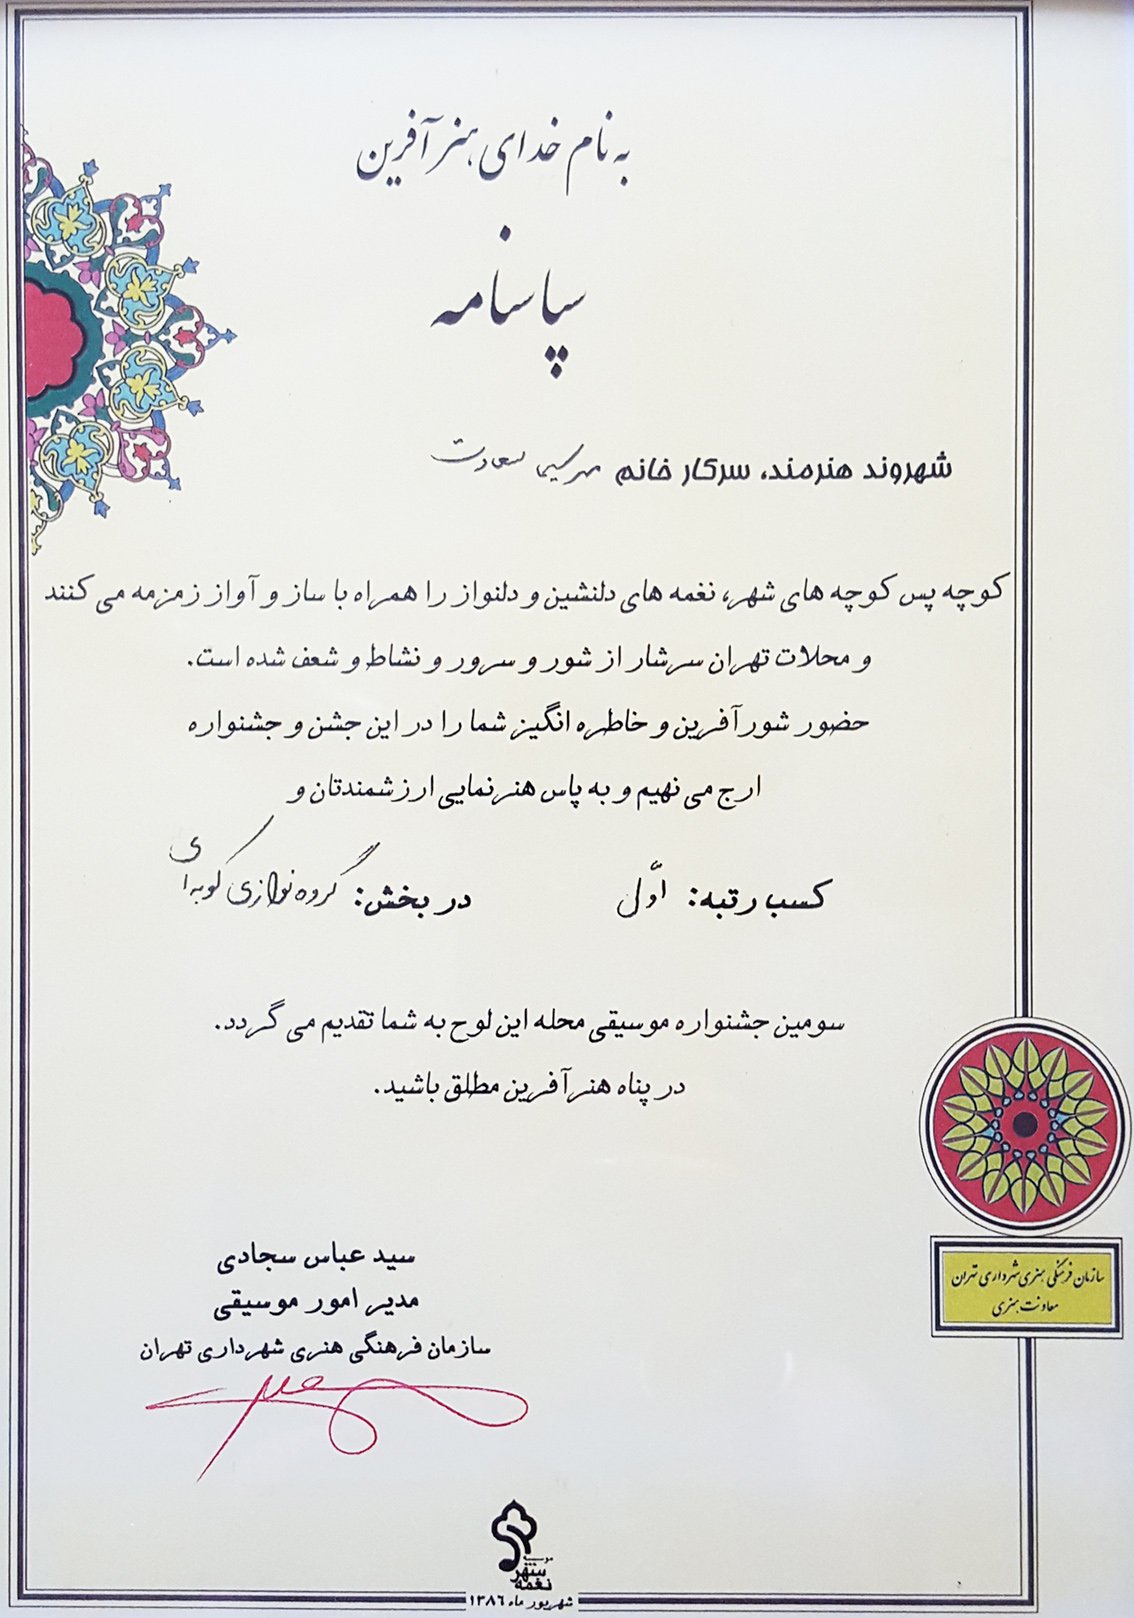 به نام خدای هنرآفرین
سپاسنامه
شهروند هنرمند، سرکار خانم مهرسیما سعادت
کوچه پس کوچه های شهر، نغمه های دلنشین و دلنواز را همراه با ساز و آواز زمزمه می کنند
و محلات تهران سرشار از شور و سرور و نشاط و شعف شده است.
حضور شورآفرین و خاطره انگیز شما را در این جشن و جشنواره
ارج می نهیم و به پاس هنرنمایی ارزشمندتان و
کسب رتبه: اوّل در بخش: گروه نوازی کوبه ای
سومین جشنواره موسیقی محله این لوح به شما تقدیم می گردد.
در پناه هنرآفرین مطلق باشید.
سازمان فرهنگی هنری شهرداری تهران
معاونت هنری
سید عباس سجادی
مدیر امور موسیقی
سازمان فرهنگی هنری شهرداری تهران
موسسه
نغمه شهر
شهریور ماه ۱۳۸۶